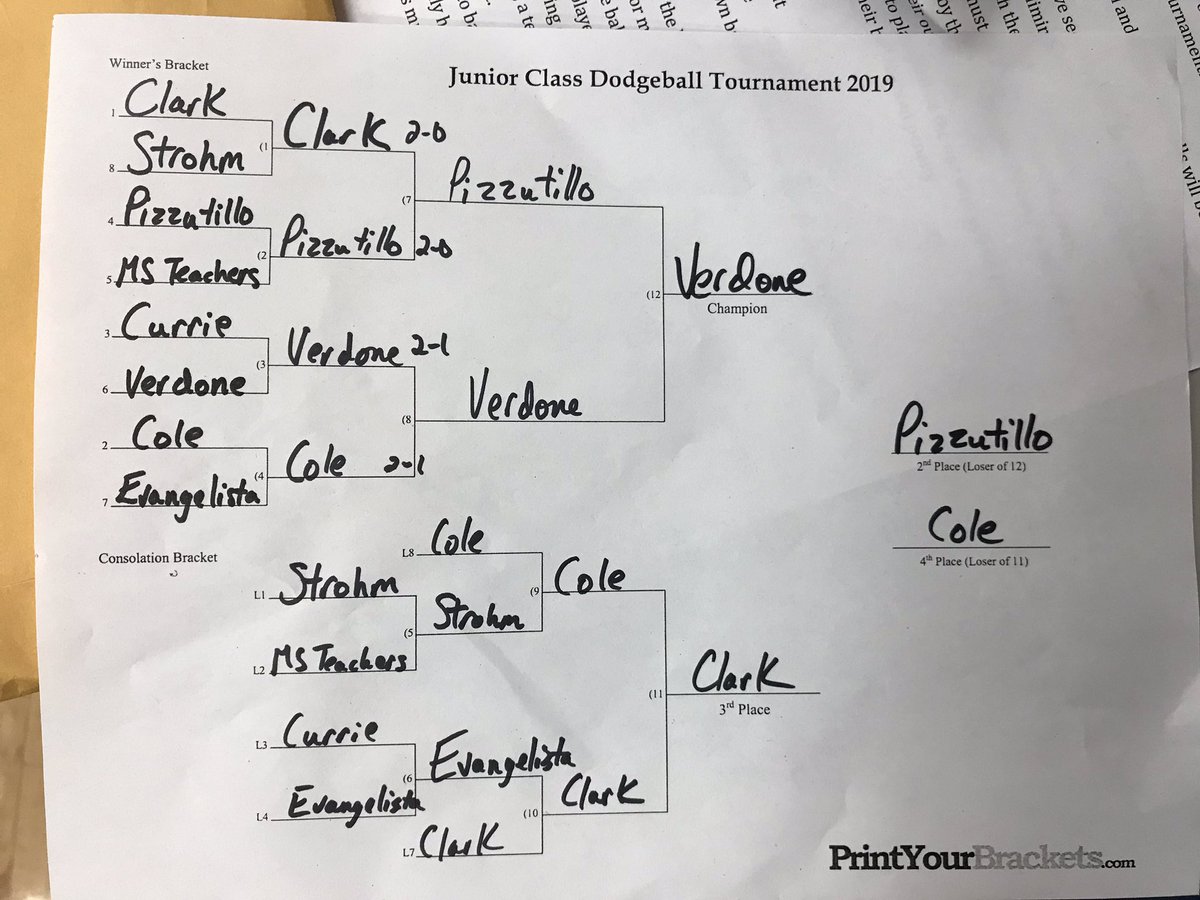 Junior Class Dodgeball Tournament 2019
Winner's Bracket
1 Clark
8 Strohm
4 Pizzutillo
5 MS Teachers
3 Currie
6 Verdone
2 Cole
7 Evangelista
(1 Clark 2-0
(2 Pizzutillo 2-0
(3 Verdone 2-1
(4 Cole 2-1
(7 Pizzutillo
(8 Verdone
(12 Verdone
Champion
Pizzutillo
2nd Place (Loser of 12)
Cole
4th Place (Loser of 11)
Consolation Bracket
L1 Strohm
L2 MS Teachers
L3 Currie
L4 Evangelista
L8 Cole
(5 Strohm
(6 Evangelista
L7 Clark
(9 Cole
(10 Clark
(11 Clark
3rd Place
PrintYourBrackets.com